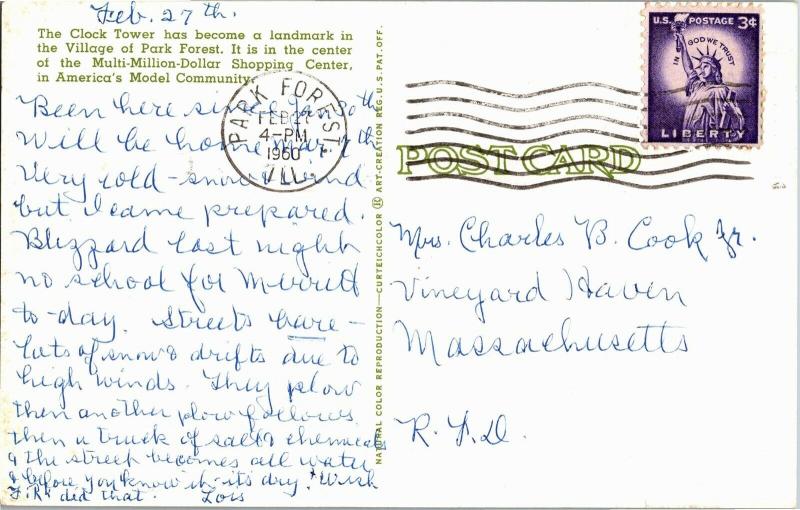 Feb. 27th.
The Clock Tower has become a landmark in
the Village of Park Forest. It is in the center
of the Multi-Million-Dollar Shopping Center,
in America's Model Community.
Been here since Jan 30th
Will be home Mar 7th
Very cold - snow & wind
but I came prepared.
Blizzard last night
no school for Merritt
to-day. Streets bare -
lots of snow & drifts due to
high winds. They plow
then another plow follows
then a truck of salt & chemicals
& the street becomes all water
& before you know it - its dry. Wish
did that. Lois
PARK FOREST
FEB
4-PM
1960
ILL.
NATURAL COLOR REPRODUCTION—CURTEICHCOLOR ® ART-CREATION REG. U.S. PAT. OFF.
U.S. POSTAGE 3¢
IN GOD WE TRUST
LIBERTY
POST CARD
Mrs. Charles B. Cook Jr.
Vineyard Haven
Massachusetts
R.F.D.